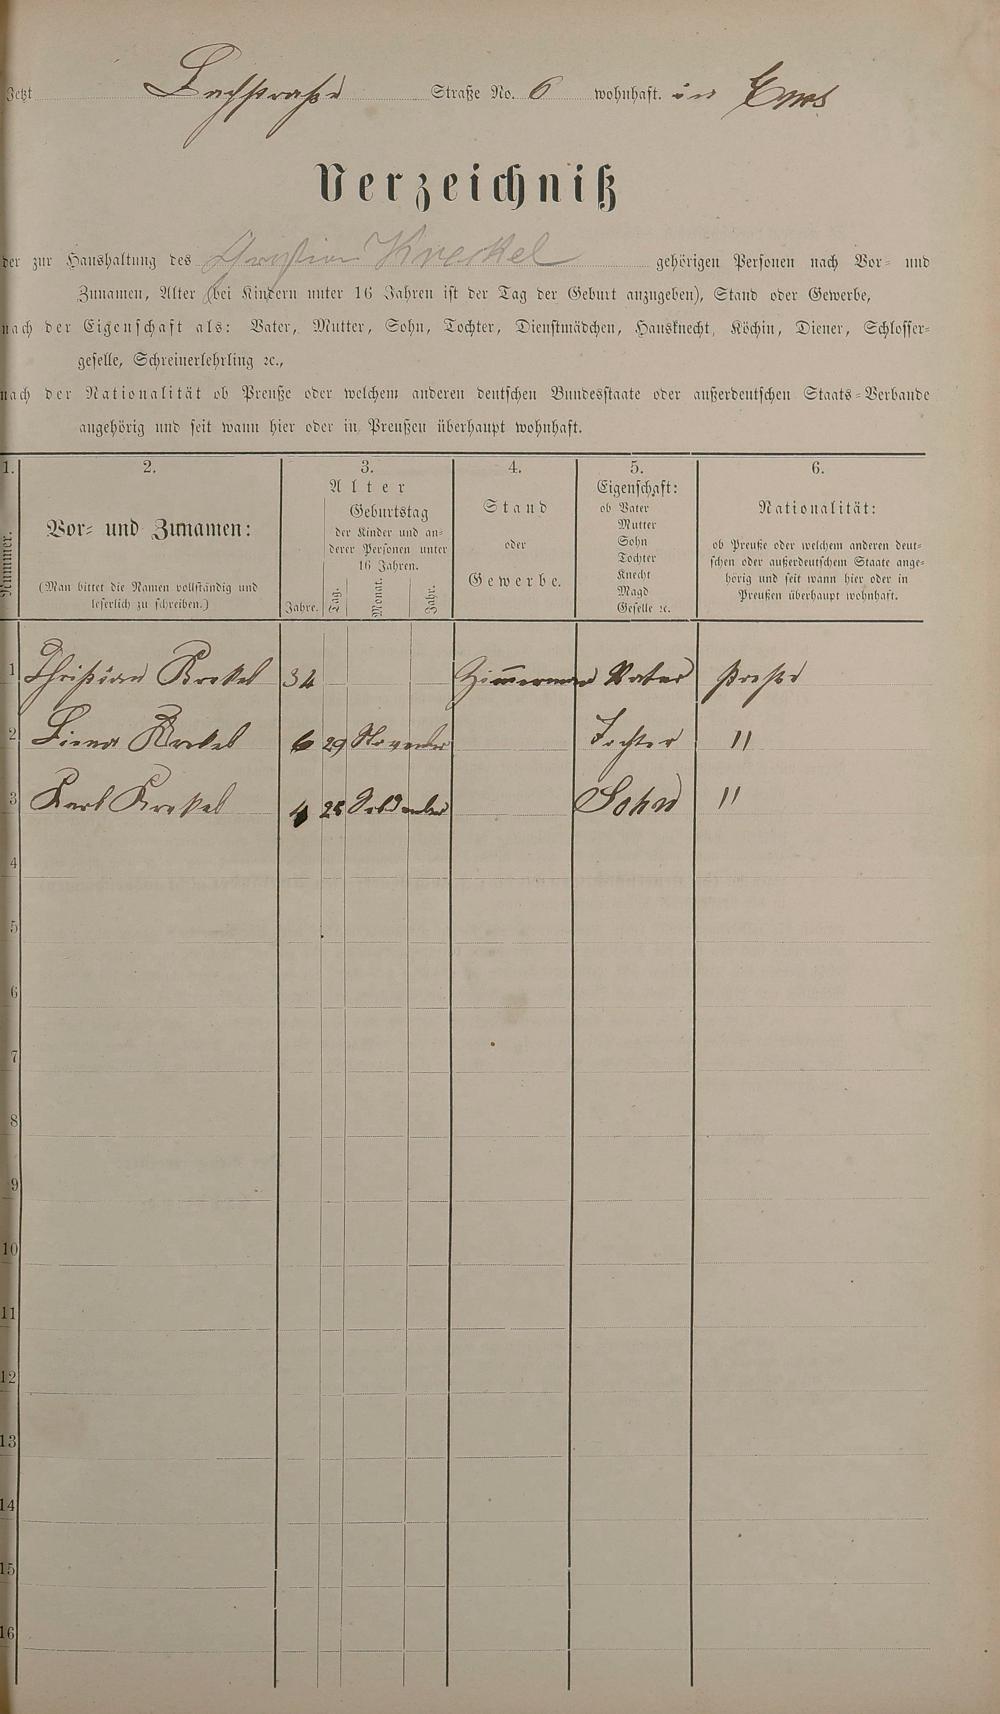 Jetzt Bachstraße Straße No. 6 wohnhaft. in Ems
Verzeichniß
der zur Haushaltung des Christian Kreckel gehörigen Personen nach Vor- und
Zunamen, Alter (bei Kindern unter 16 Jahren ist der Tag der Geburt anzugeben), Stand oder Gewerbe,
nach der Eigenschaft als: Vater, Mutter, Sohn, Tochter, Dienstmädchen, Hausknecht, Köchin, Diener, Schlosser-
geselle, Schreinerlehrling ꝛc.,
nach der Nationalität ob Preuße oder welchem anderen deutschen Bundesstaate oder außerdeutschen Staats-Verbande
angehörig und seit wann hier oder in Preußen überhaupt wohnhaft.
1. 2. 3. 4. 5. 6.
Nummer.
Vor- und Zunamen:
(Man bittet die Namen vollständig und
leserlich zu schreiben.)
Alter
Geburtstag
der Kinder und an-
derer Personen unter
16 Jahren.
Jahre. Tag. Monat. Jahr.
Stand
oder
Gewerbe.
Eigenschaft:
ob Vater
Mutter
Sohn
Tochter
Knecht
Magd
Geselle ꝛc.
Nationalität:
ob Preuße oder welchem anderen deut-
schen oder außerdeutschem Staate ange-
hörig und seit wann hier oder in
Preußen überhaupt wohnhaft.
1 Christian Krekel 34 Zimmerman Vater
2 Krekel 6 29 November Tochter "
3 Karl Krekel 4 28 Sohn "
4
5
6
7
8
9
10
11
12
13
14
15
16